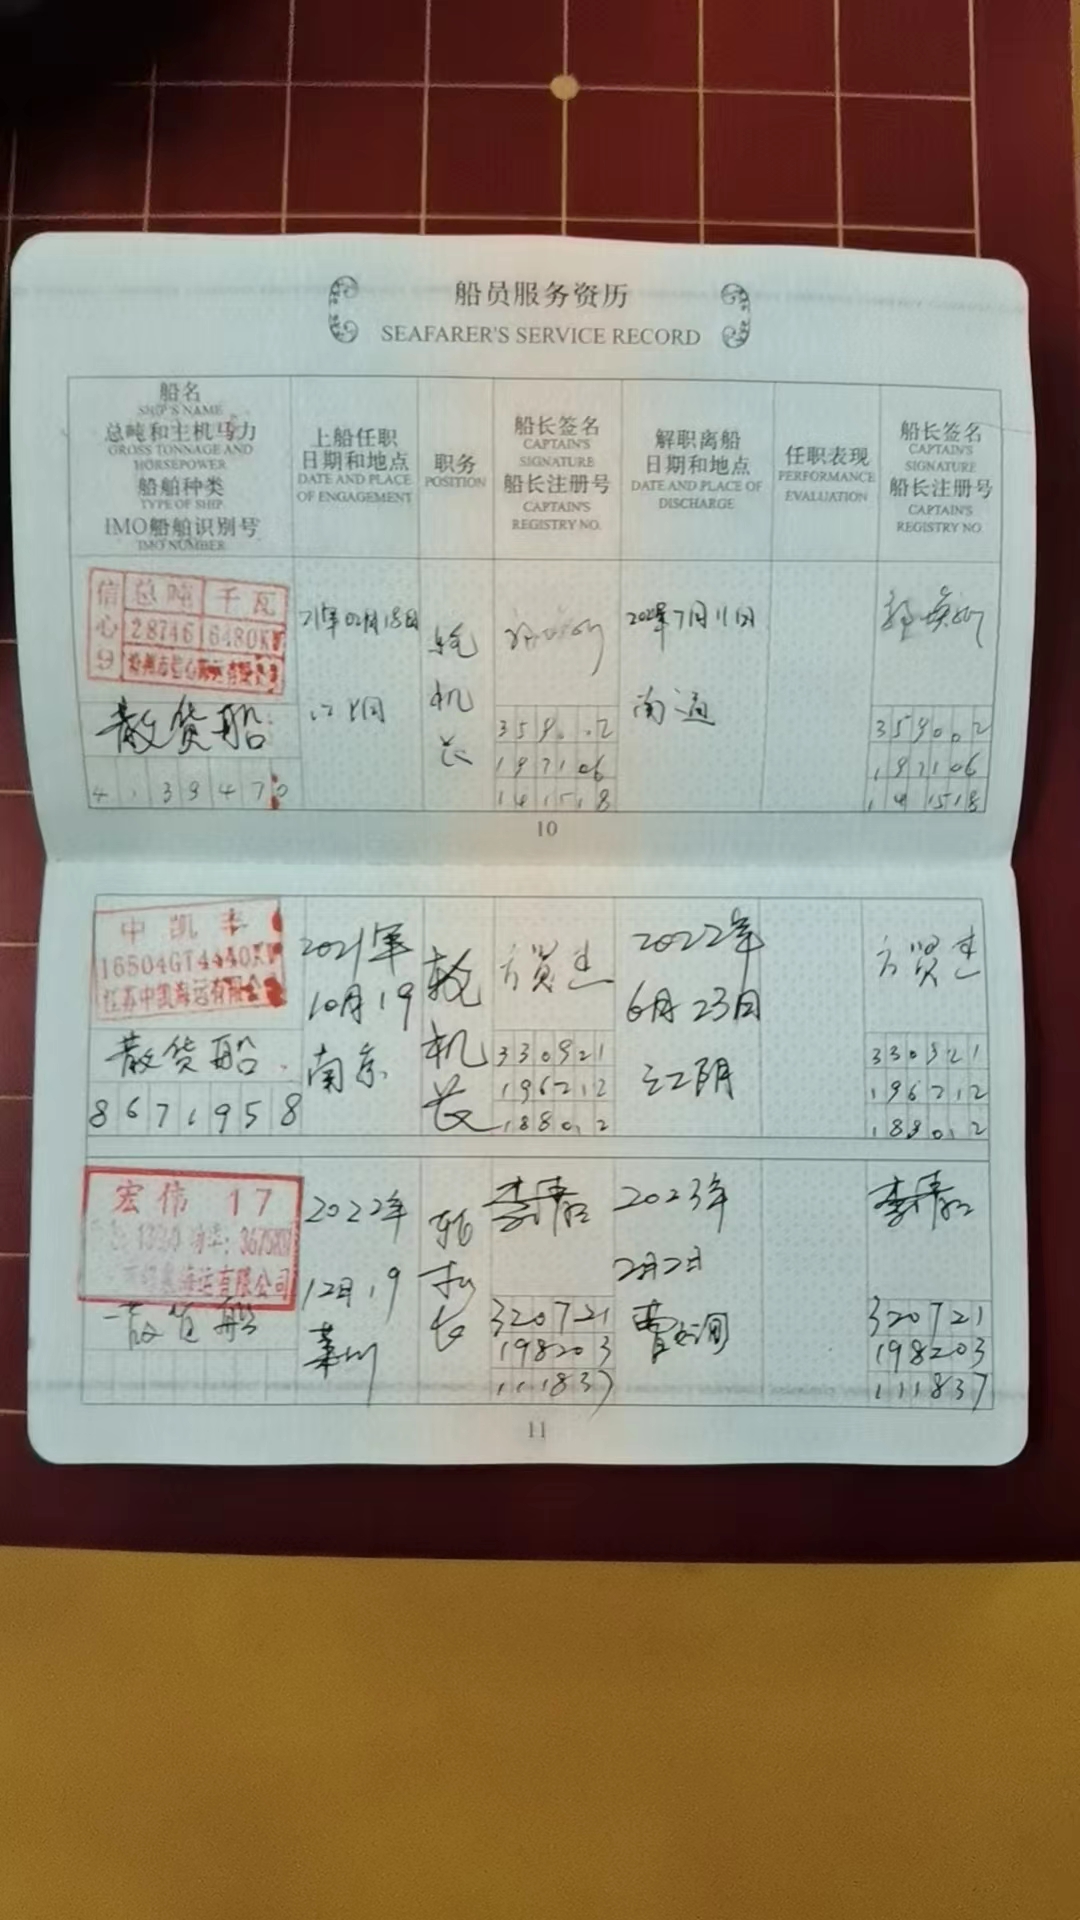 船员服务资历
SEAFARER'S SERVICE RECORD
船名
SHIP'S NAME
总吨和主机马力
GROSS TONNAGE AND
HORSEPOWER
船舶种类
TYPE OF SHIP
IMO船舶识别号
IMO NUMBER
上船任职
日期和地点
DATE AND PLACE
OF ENGAGEMENT
职务
POSITION
船长签名
CAPTAIN'S
SIGNATURE
船长注册号
CAPTAIN'S
REGISTRY NO.
解职离船
日期和地点
DATE AND PLACE OF
DISCHARGE
任职表现
PERFORMANCE
EVALUATION
船长签名
CAPTAIN'S
SIGNATURE
船长注册号
CAPTAIN'S
REGISTRY NO
信心
总吨 千瓦
28746 6480KW
散货船
21年02月18日
轮
机
长
7月11日
南通
10
中凯丰
16504GT4440KW
江苏中凯海运有限公
散货船
8671958
2021年
10月19
南京
轮
机
长
方贤进
330921
196212
188012
2022年
6月23日
江阴
方贤进
330921
196212
188012
宏伟 17
海运有限公司
散货船
2022年
12月19
莱州
轮
机
长
320721
198203
111837
2023年
2月2日
320721
198203
111837
11